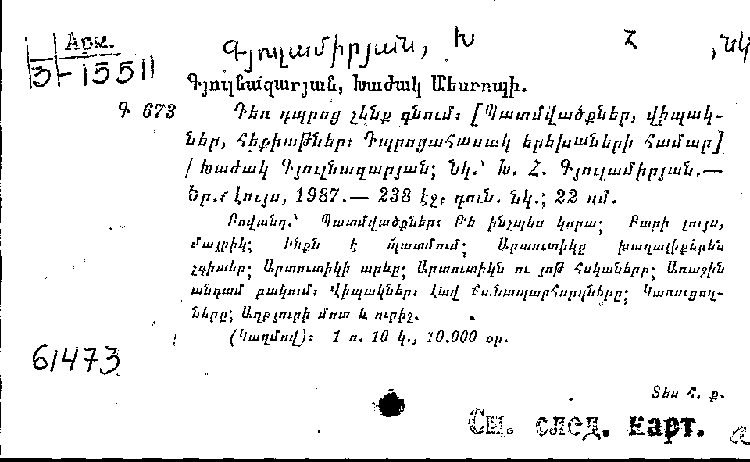 Արև. Գյուլամիրյան, Խ Հ , նկ
3-15511
Գյուլնազարյան, Խաժակ Մեսրոպի.
Գ 673 Դեռ դպրոց չենք գնում: [Պատմվածքներ, վիպակ-
ներ, հեքիաթներ: Դպրոցահասակ երեխաների համար]
/ Խաժակ Գյուլնազարյան; Նկ.՝ Խ. Հ. Գյուլամիրյան.—
Եր.: Լույս, 1987.— 238 էջ, գուն. նկ.; 22 սմ.
Բովանդ.՝ Պատմվածքներ: Թե ինչպես կորա; Բարի լույս,
մայրիկ; Ինքն է պատմում; Արտուտիկը խաղալիքներեն
չգիտեր; Արտուտիկի արևը; Արտուտիկն ու յոթ հսկաները; Առաջին
անգամ բակում: Վիպակներ: Լավ ճանապարհորդները; Կառուցող-
ները; Աղբյուրի մոտ և ուրիշ.
(Կազմով): 1 ռ. 10 կ., 10.000 օր.
61473
Տես հ. ք.
См. след. карт.